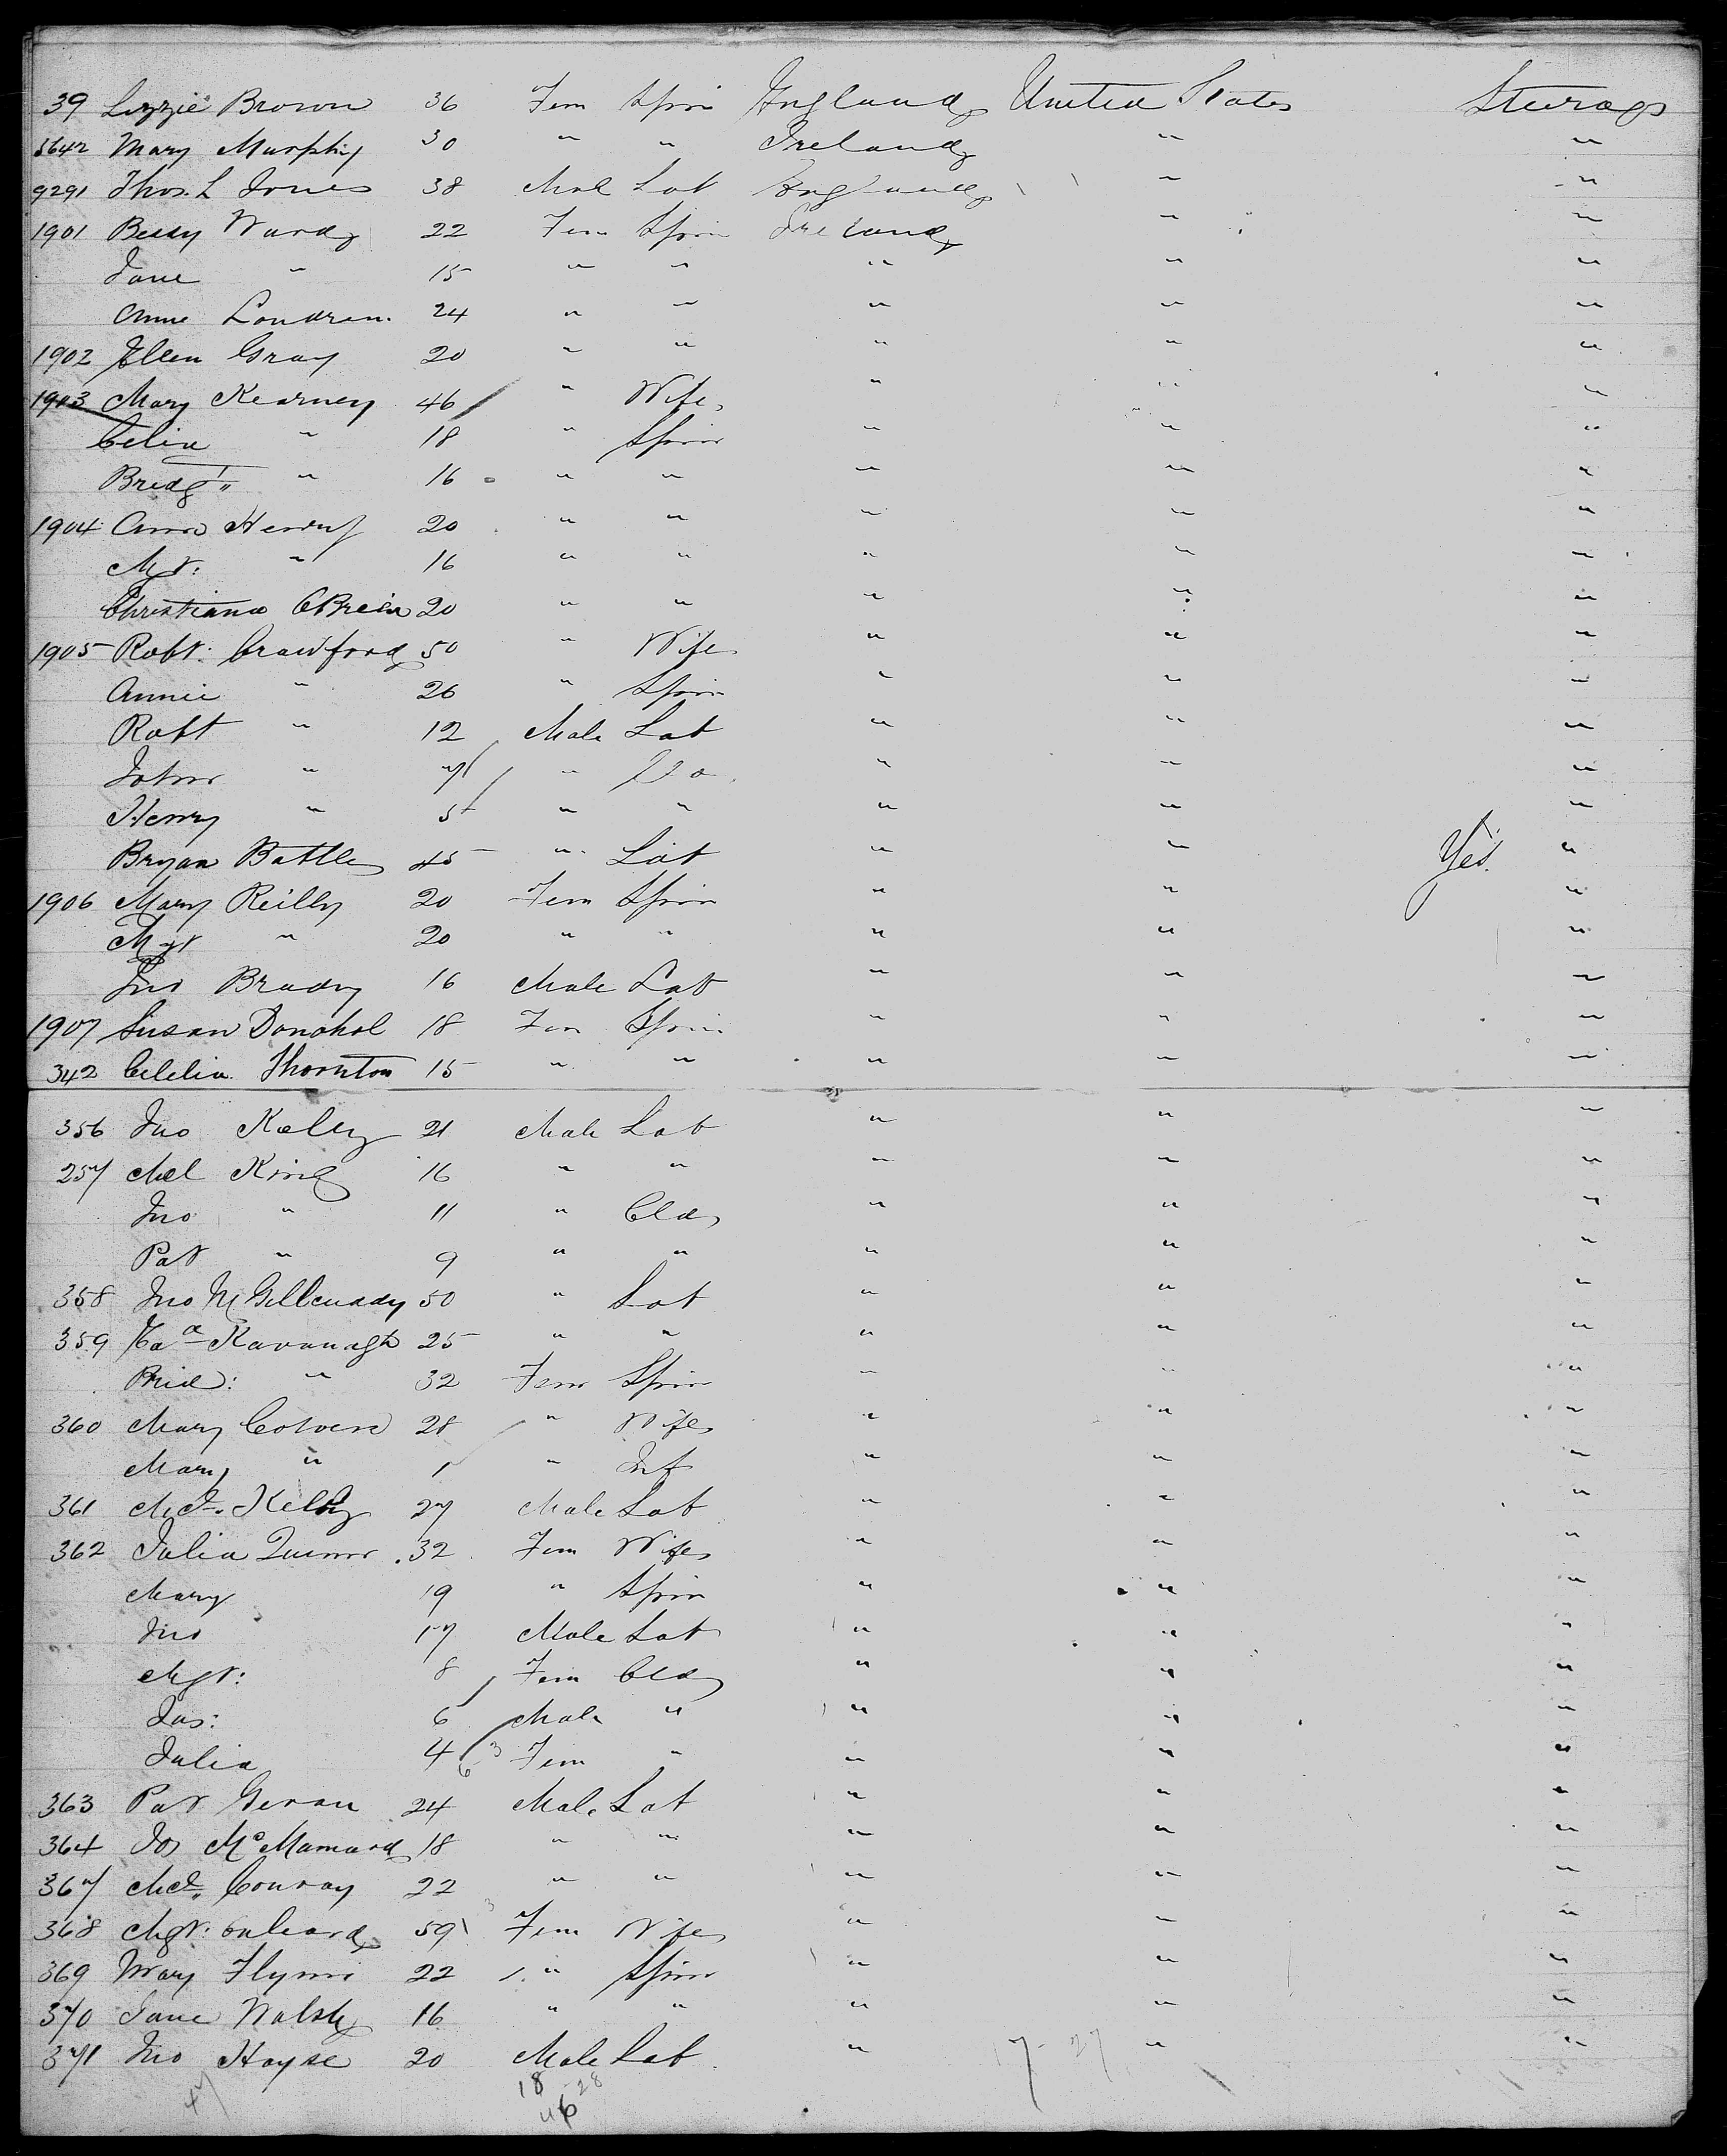 39 Lizzie Brown 36 Fem Spin England United States Steerage
5642 Mary Murphy 30 " " Ireland " "
9291 Thos. L Jones 38 Male Lab England " "
1901 Bessy Ward 22 Fem Spin Ireland " "
Jane " 15 " " " " "
Anne Londren 24 " " " " "
1902 Ellen Gray 20 " " " " "
1903 Mary Kearney 46 " Wife " " "
Celia " 18 " Spin " " "
Bridgt " 16 " " " " "
1904 Ann Henry 20 " " " " "
Mgt: " 16 " " " " "
Christiana OBrein 20 " " " " "
1905 Robt: Crawford 50 " Wife " " "
Annie " 26 " Spin " " "
Robt " 12 Male Lab " " "
John " 7 " Do " " "
Henry " 5 " " " " "
Bryan Battle 45 " Lab " " Yes. "
1906 Mary Reilly 20 Fem Spin " " "
Mgt " 20 " " " " "
Jno Brady 16 Male Lab " " "
1907 Susan Donohol 18 Fem Spin " " "
342 Celelia Thornton 15 " " " " "
356 Jno Kelly 21 Male Lab " " "
257 Mel King 16 " " " " "
Jno " 11 " Cld " " "
Pat " 9 " " " " "
358 Jno McGillcuddy 50 " Lab " " "
359 Kavanagh 25 " " " " "
Brid: " 32 Fem Spin " " "
360 Mary Colven 28 " Wife " " "
Mary " 1 " Inf " " "
361 Mcl. Kelly 27 Male Lab " " "
362 Julia Quinn 32 Fem Wife " " "
Mary 19 " Spin " " "
Jno 17 Male Lab " " "
Mgt: 8 Fem Cld " " "
Jas: 6 Male " " " "
Julia 4 Fem " " " "
363 Pat Geran 24 Male Lab " " "
364 Jos McMamard 18 " " " " "
367 Mcl. Conray 22 " " " " "
368 Mgt: 59 Fem Wife " " "
369 Mary Flynn 22 " Spin " " "
370 Jane Walsh 16 " " " " "
371 Jno Hayse 20 Male Lab " 17-27 " "
47 18 28
46